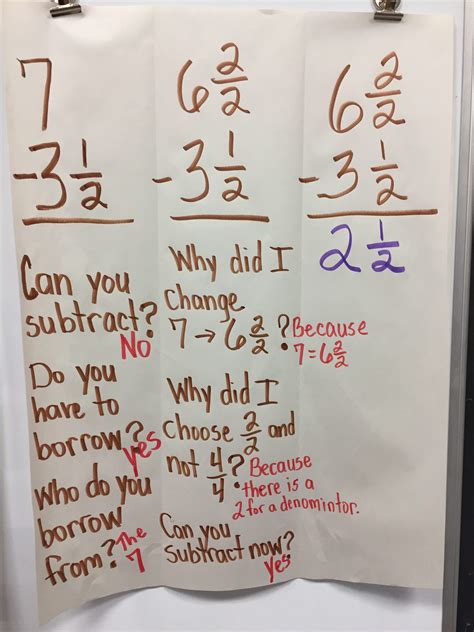 7
-3 1/2
Can you
subtract?
No
Do you
have to
borrow?
yes
Who do you
borrow
from? The
7
6 2/2
-3 1/2
Why did I
Change
7→6 2/2? Because
7=6 2/2
Why did I
Choose 2/2 and
not 4/4? Because
there is a
2 for a denomintor.
Can you
subtract now?
yes
6 2/2
-3 1/2
2 1/2